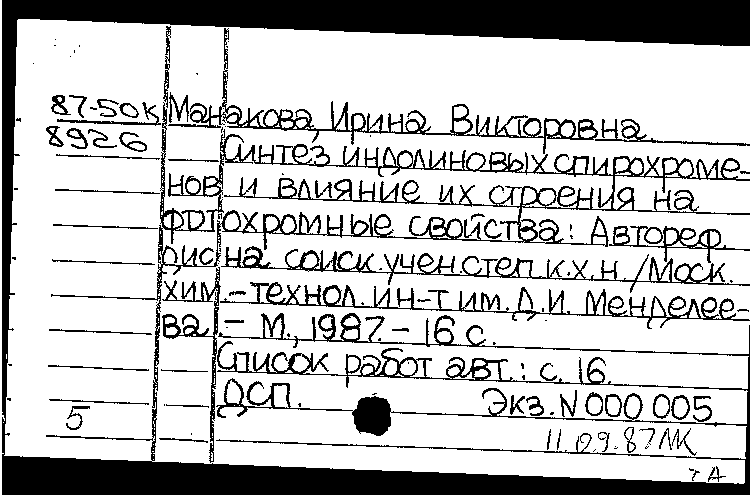 87-50к Манакова, Ирина Викторовна.
8926 Синтез индолиновых спирохроме-
нов и влияние их строения на
фотохромные свойства: Автореф.
дис на соиск. учен. степ. к.х.н. /Моск.
хим.-технол. ин-т им. Д.И. Менделее-
ва. - М., 1987. - 16 с.
Список работ авт.: с. 16.
ДСП. Экз. N 000 005.
5 11.09.87 ЛК
т А